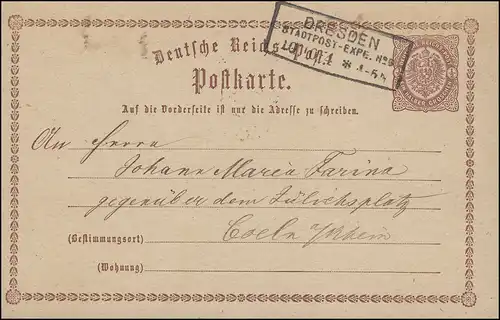 DRESDEN
STADTPOST-EXPE. No
Deutsche Reichs-Post
Postkarte.
Auf die Vorderseite ist nur die Adresse zu schreiben.
An Herrn
Johann Maria Farina
gegenüber dem Jülichsplatz
(Bestimmungsort) Coeln a/Rhein
(Wohnung)